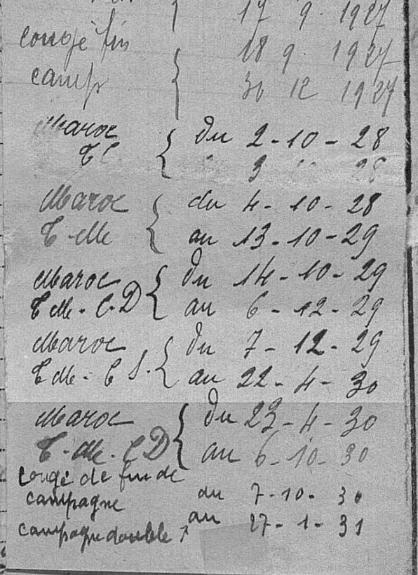 17 9 1927
congé fin 18 9 1927
camp 30 12 1927
Maroc du 2-10-28
T C " 3 " " 28
Maroc du 4-10-28
T-M au 13-10-29
Maroc du 14-10-29
T M-C-D au 6-12-29
Maroc du 7-12-29
T M-C S. au 22-4-30
Maroc du 23-4-30
T-M. C D au 6-10-30
congé de fin de
campagne du 7-10-30
campagne double au 27-1-31